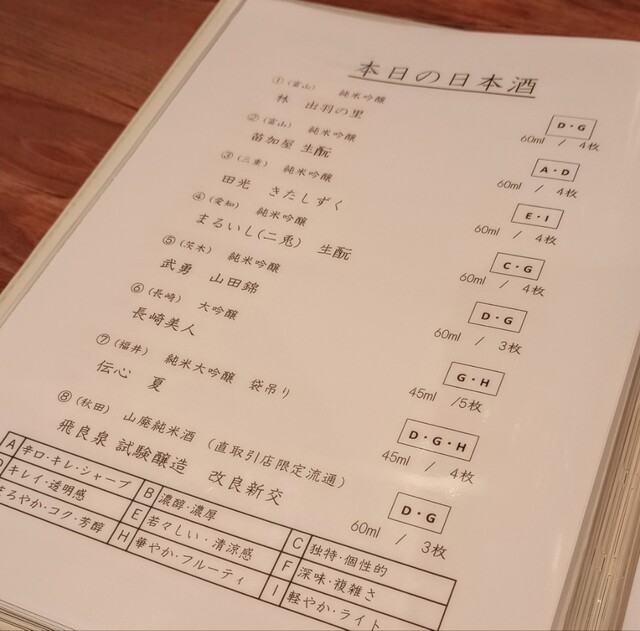 本日の日本酒
①(富山) 純米吟醸 D・G
林 出羽の里 60ml / 4枚
②(富山) 純米吟醸 A・D
苗加屋 生酛 60ml / 4枚
③(三重) 純米吟醸 E・I
田光 きたしずく 60ml / 4枚
④(愛知) 純米吟醸 C・G
まるいし(二兎) 生酛 60ml / 4枚
⑤(茨木) 純米吟醸 D・G
武勇 山田錦 60ml / 3枚
⑥(長崎) 大吟醸 G・H
長崎美人 45ml /5枚
⑦(福井) 純米大吟醸 袋吊り D・G・H
伝心 夏 45ml / 4枚
⑧(秋田) 山廃純米酒 (直取引店限定流通) D・G
飛良泉 試験醸造 改良新交 60ml / 3枚
A 辛口・キレ・シャープ B 濃醇・濃厚 C 独特・個性的
D キレイ・透明感 E 若々しい・清涼感 F 深味・複雑さ
まろやか・コク・芳醇 H 華やか・フルーティ I 軽やか・ライト